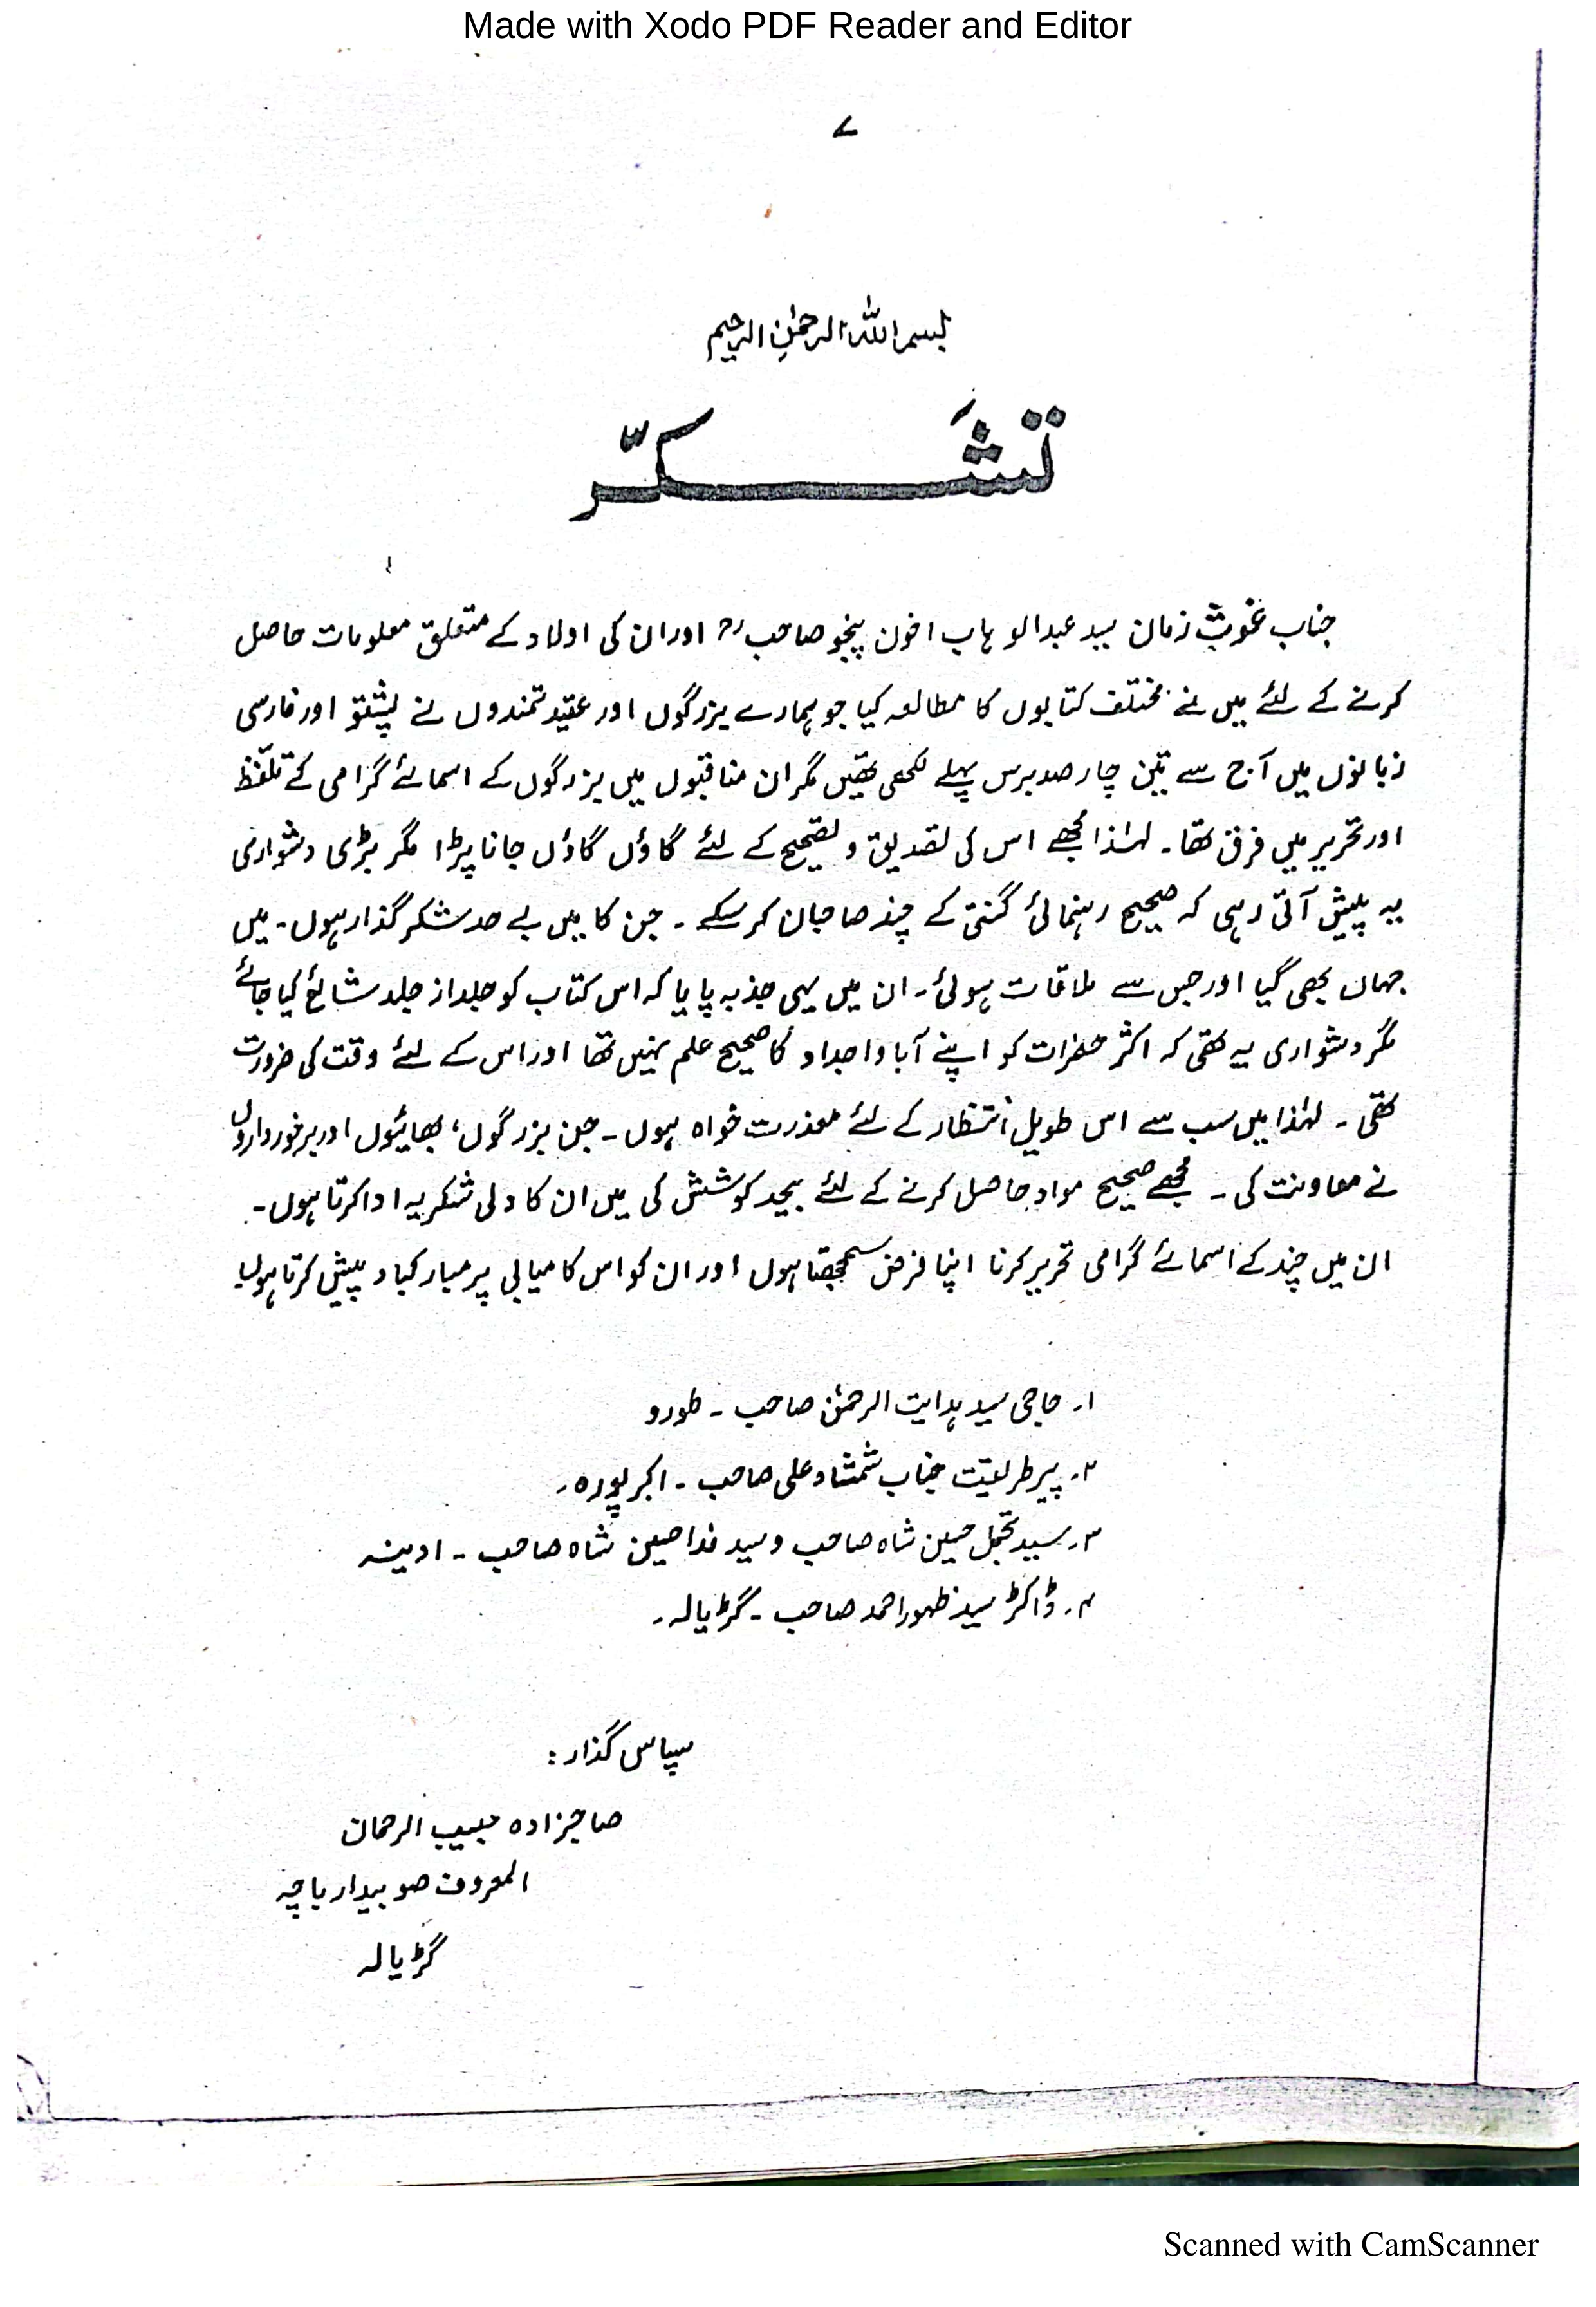 Made with Xodo PDF Reader and Editor
۷
بسم اللہ الرحمٰن الرحیم
تشَکّر
جناب غوث زمان سید عبدالوہاب اخون پنجو صاحبؒ اور ان کی اولاد کے متعلق معلومات حاصل
کرنے کے لئے میں نے مختلف کتابوں کا مطالعہ کیا جو ہمارے بزرگوں اور عقیدتمندوں نے پشتو اور فارسی
زبانوں میں آج سے تین چار صد برس پہلے لکھی تھیں مگر ان مناقبوں میں بزرگوں کے اسمائے گرامی کے تلفّظ
اور تحریر میں فرق تھا۔ لہٰذا مجھے اس کی تصدیق و تصحیح کے لئے گاؤں گاؤں جانا پڑا مگر بڑی دشواری
یہ پیش آتی رہی کہ صحیح رہنمائی گنتی کے چند صاحبان کر سکے۔ جن کا میں بے حد شکر گذار ہوں۔ میں
جہاں بھی گیا اور جس سے ملاقات ہوئی۔ ان میں یہی جذبہ پایا کہ اس کتاب کو جلد از جلد شائع کیا جائے
مگر دشواری یہ تھی کہ اکثر حضرات کو اپنے آبا و اجداد کا صحیح علم نہیں تھا اور اس کے لئے وقت کی ضرورت
تھی۔ لہٰذا میں سب سے اس طویل انتظار کے لئے معذرت خواہ ہوں۔ جن بزرگوں، بھائیوں اور برخورداروں
نے معاونت کی۔ مجھے صحیح مواد حاصل کرنے کے لئے بیحد کوشش کی میں ان کا دلی شکریہ ادا کرتا ہوں۔
ان میں چند کے اسمائے گرامی تحریر کرنا اپنا فرض سمجھتا ہوں اور ان کو اس کامیابی پر مبارکباد پیش کرتا ہوں
۱۔ حاجی سید ہدایت الرحمٰن صاحب۔ طورو
۲۔ پیر طریقت جناب شمشاد علی صاحب۔ اکبر پورہ۔
۳۔ سید تجمل حسین شاہ صاحب و سید فدا حسین شاہ صاحب۔ ادینہ
۴۔ ڈاکٹر سید ظہور احمد صاحب۔ گڑیالہ۔
سپاس گذار:
صاحبزادہ حبیب الرحمان
المعروف صوبیدار باچہ
گڑیالہ
Scanned with CamScanner